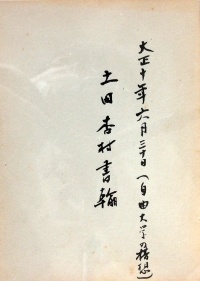 大正十年六月三十日(自由大学の構想)
土田杏村書翰